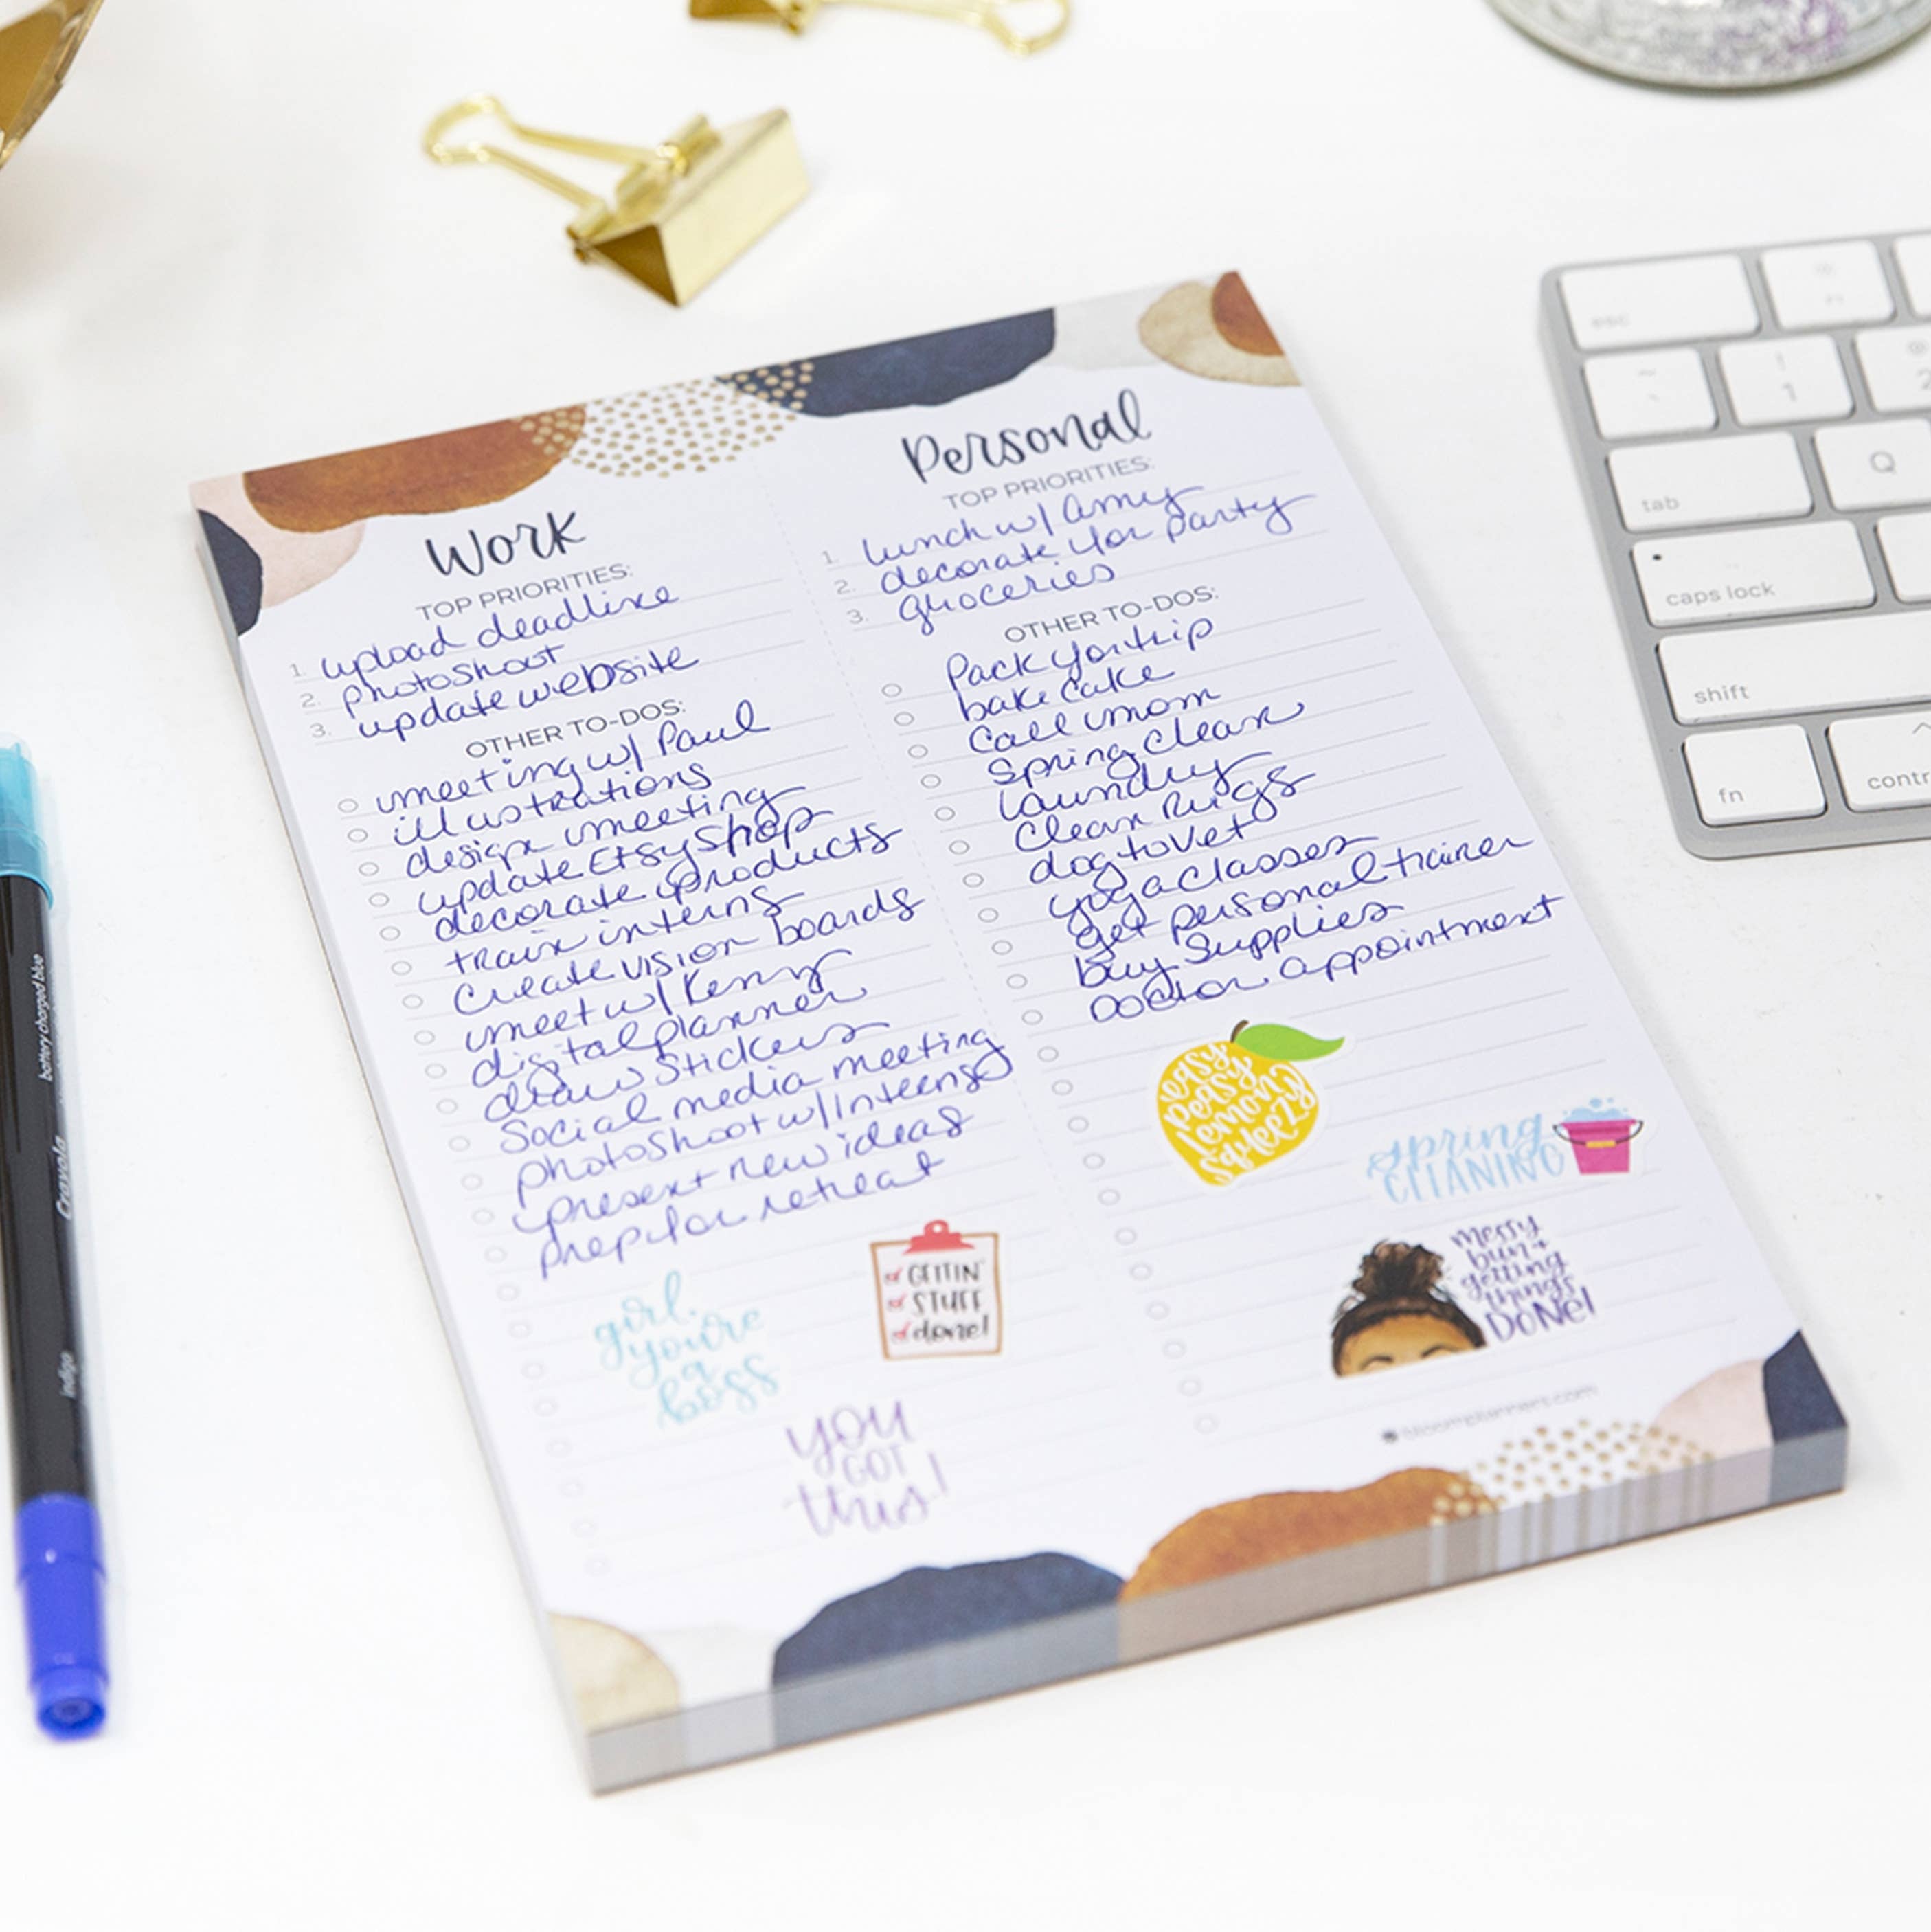 Work
TOP PRIORITIES:
1. upload deadline
2. photoshoot
3. update website
OTHER TO-DOS:
meeting w/ Paul
illustrations
design meeting
update Etsy Shop
decorate products
train interns
create vision boards
meet w/ Kenny
digital planner
draw stickers
Social media meeting
photoshoot w/ Interns
present new ideas
prep for retreat
girl,
you're
a
boss
GETTIN'
STUFF
done!
YOU
GOT
this!
Personal
TOP PRIORITIES:
1. lunch w/ Amy
2. decorate for party
3. groceries
OTHER TO-DOS:
Pack for trip
bake cake
Call mom
Spring clean
laundry
Clean Rugs
dog to Vet
yoga classes
get personal trainer
buy Supplies
Doctor appointment
easy
peasy
lemon
squeezy
spring
CLEANING
messy
bun +
getting
things
DONE!
bloomplanners.com
esc
~
`
!
1
2
tab
Q
caps lock
shift
fn
contr
battery charged blue
Crayola
indigo